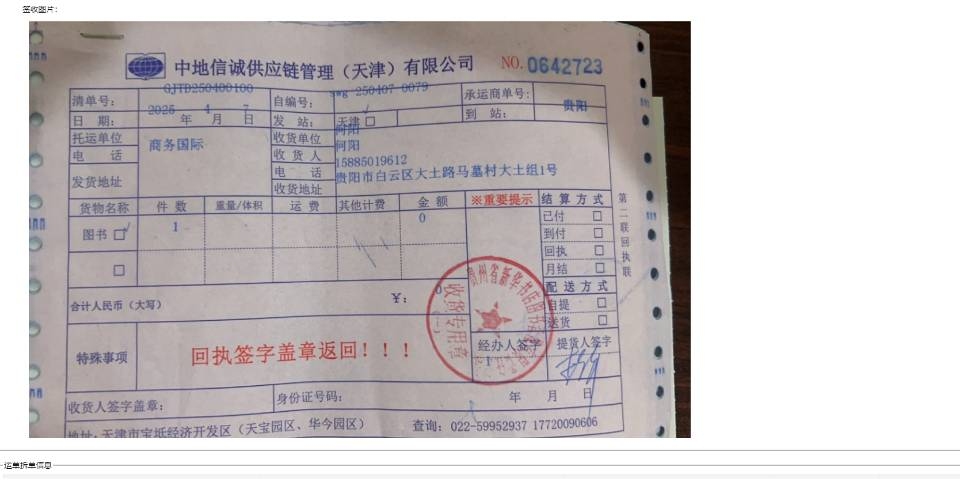 签收图片:
中地信诚供应链管理（天津）有限公司 NO. 0642723
清单号: GJTD250400100 自编号: swg-250407-0079 承运商单号:
日 期: 2025 年 4 月 7 日 发 站: 天津 到 站: 贵阳
托运单位 商务国际 收货单位 何阳
电 话 收 货 人 何阳
电 话 15885019612
发货地址 收货地址 贵阳市白云区大土路马墓村大土组1号
货物名称 件 数 重量/体积 运 费 其他计费 金 额 ※重要提示 结 算 方 式
图书 1 0 已付
到付
回执
月结
配 送 方 式
合计人民币（大写） ￥: 0 自提
送货
第二联回执联
收货专用章
特殊事项 回执签字盖章返回！！！ 经办人签字 提货人签字
收货人签字盖章: 身份证号码: 年 月 日
地址:天津市宝坻经济开发区（天宝园区、华今园区） 查询: 022-59952937 17720090606
运单拆单信息